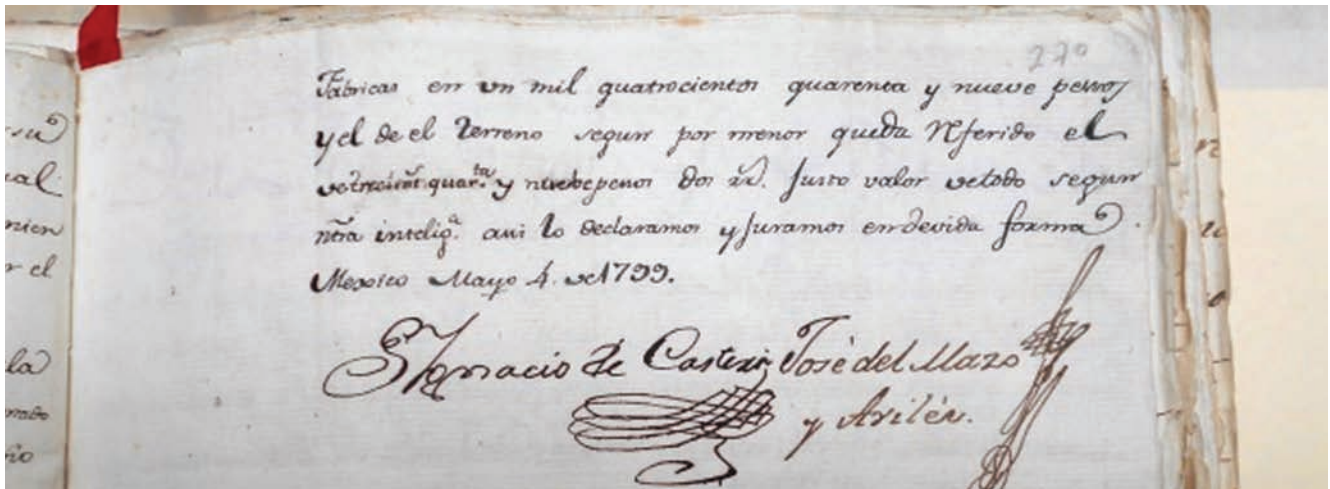 270
Fabricas en un mil quatrocientos quarenta y nueve pesos
y el de el Terreno segun por menor queda Referido el
de trecient.s quar.ta y nuebe pesos dos rr.s. Justo valor de todo segun
ntra intelig.a asi lo declaramos y Juramos en devida forma.
Mexico Mayo 4. de 1799.
Ignacio de Castera José del Mazo
y Avilés.
su
ual
mien
r el
la